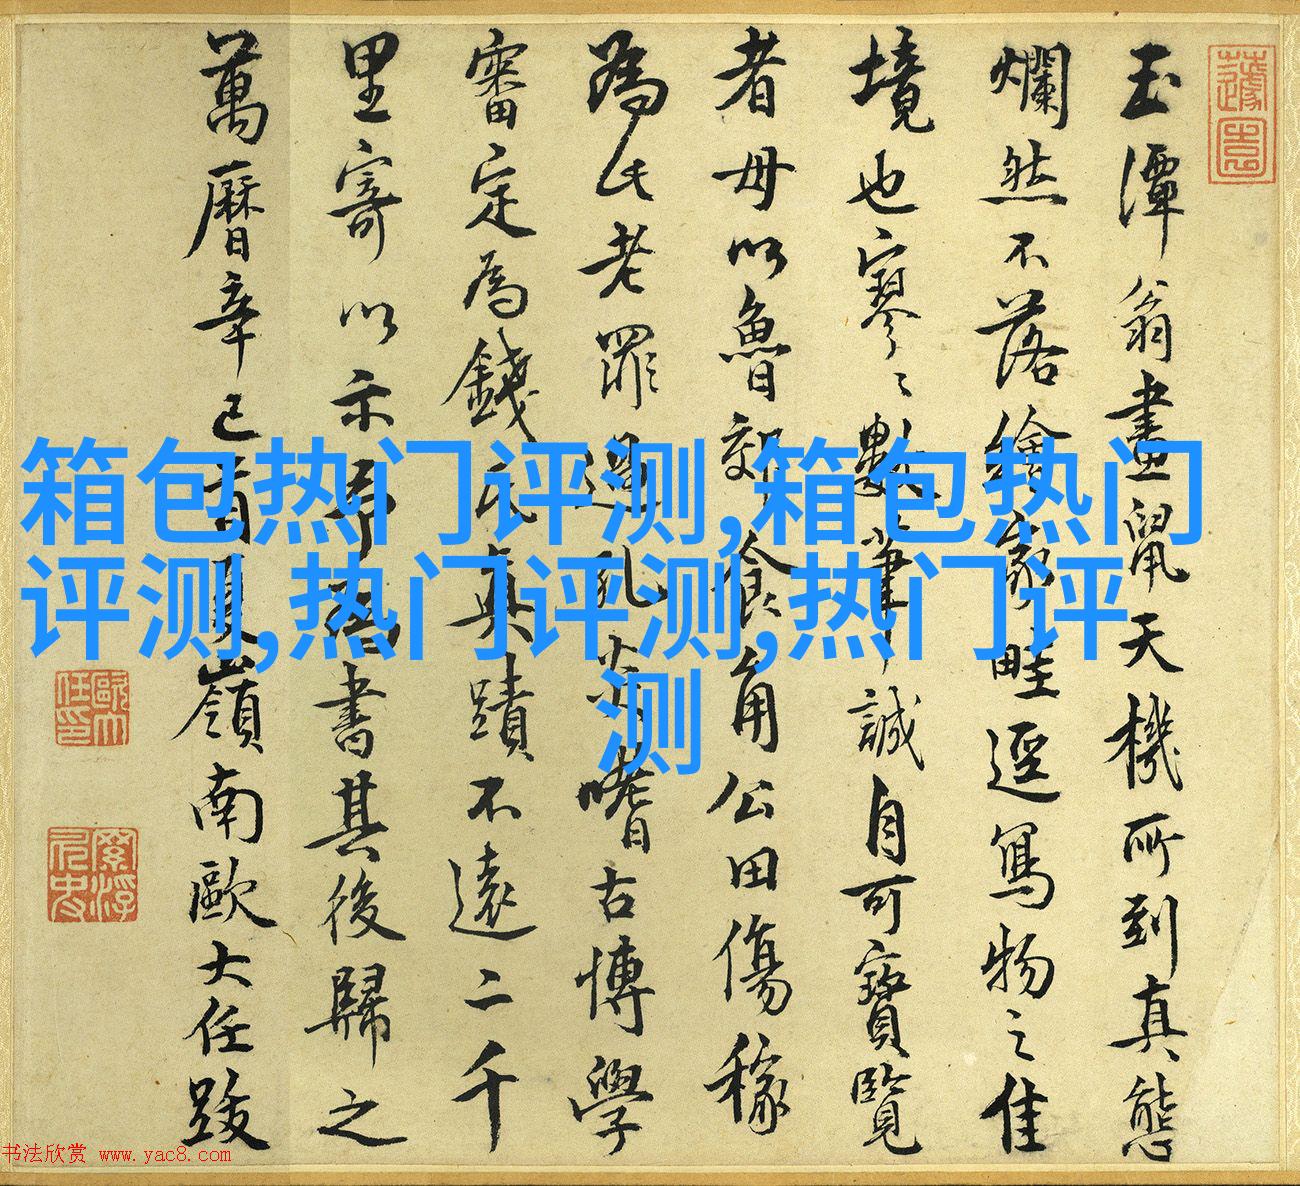 玉潭翁畫鼠天機所到真態
爛然不落繪家畦逕寫物之佳
境也寥〻數筆誠自可寶覽
者毋以魯郊食角公田傷稼
為氏老罪過乳炎嗜古博學
審定為錢氏真蹟不遠二千
里寄以示書其後歸之
萬曆辛巳首夏嶺南歐大任跋
箱包热门评测,箱包热门
评测,热门评测,热门评
测
书法欣赏 www.yac8.com